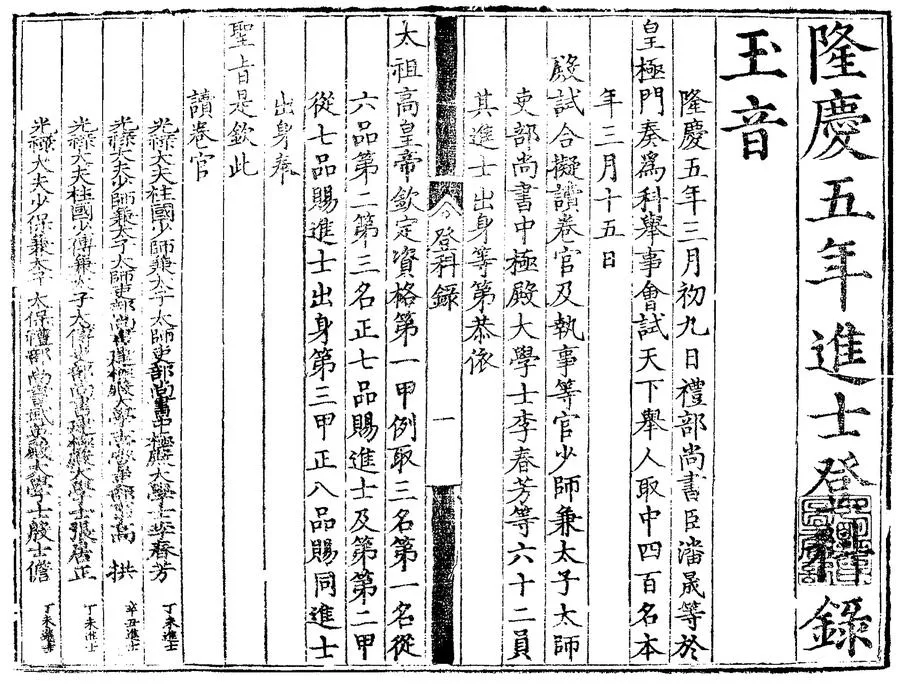 隆慶五年進士登科錄
玉音
隆慶五年三月初九日禮部尚書臣潘晟等於
皇極門奏為科舉事會試天下舉人取中四百名本
年三月十五日
殿試合擬讀卷官及執事等官少師兼太子太師
吏部尚書中極殿大學士李春芳等六十二員
其進士出身等第恭依
登科錄
一
太祖高皇帝欽定資格第一甲例取三名第一名從
六品第二第三名正七品賜進士及第第二甲
從七品賜進士出身第三甲正八品賜同進士
出身奉
聖旨是欽此
讀卷官
光祿大夫柱國少師兼太子太師吏部尚書中極殿大學士李春芳 丁未進士
光祿大夫少師兼太子太師吏部尚書建極殿大學士 高拱 辛丑進士
光祿大夫柱國少傅兼太子太傅吏部尚書建極殿大學士張居正 丁未進士
光祿大夫少保兼太子太保禮部尚書武英殿大學士殷士儋 丁未進士